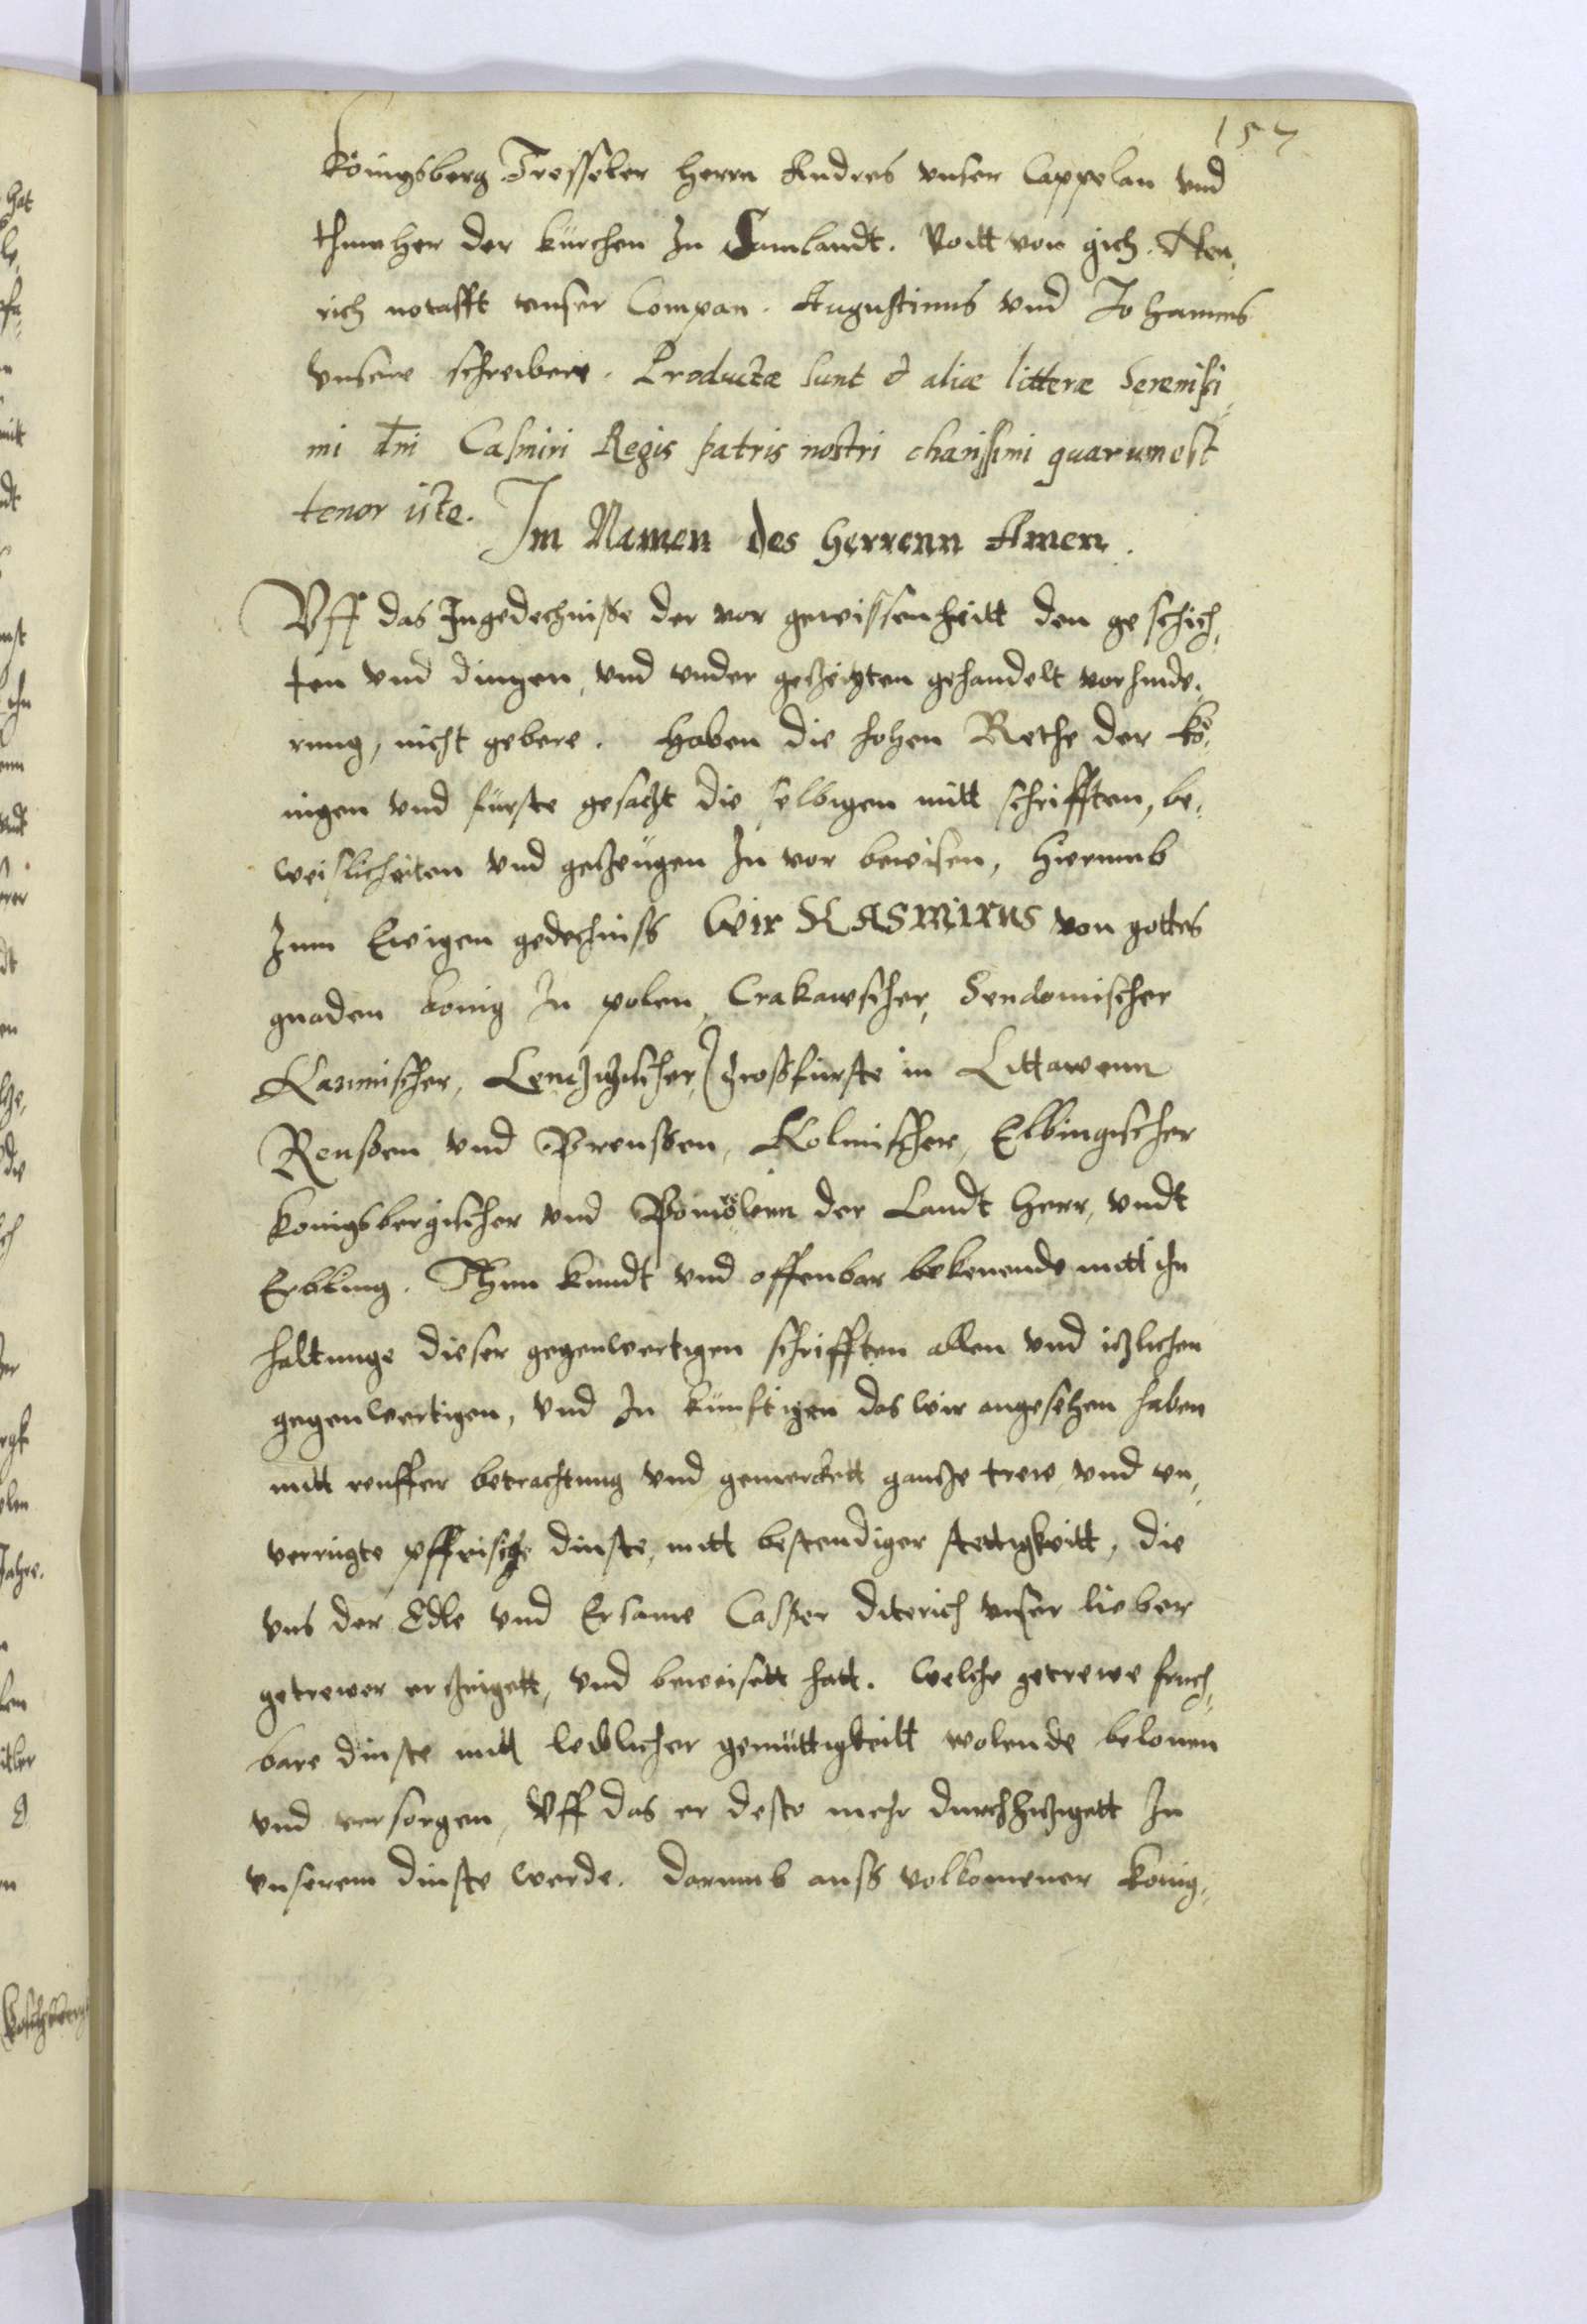 157
Königsberg Tresseler herrn Andres vnser Cappelan vnd
thumher der kürchen zu Samlandt. Voitt von gich. Hen,
rich notafft vnser Compan. Augustinus vnd Johannes
vnsere schreibere. Productæ sunt & aliæ litteræ Serenißi,
mi dni Casmiri Regis patris nostri charissimi quarum est
tenor iste.
Im Namen des Herrenn Amen.
Vff das Ingedechniße der vor gewissenheitt den geschich,
ten vnd dingen, vnd vnder gezeitten gehandelt vorhinde,
rung, nicht gebere. Haben die hohen Rethe der kö,
nigen vnd fürste gesatzt die selbigen mitt schrifften, be,
weislicheiten vnd gezeugen zu vor bewisen, hierumb
Zum Ewigen gedechniss Wir KASMIRUS von gottes
gnaden konig in polen, Crakawscher, Sendomischer
Kasmischer, Lenczizischer, Grossfurste in Littawenn
Reussen vnd Preussen, Kolmischer, Elbingischer
konigsbergischer vnd Pomölenn der Landt Herr, vndt
Erbling. Thun kundt vnd offenbar bekenende mitt in
haltunge dieser gegenwertigen schrifften allen vnd itzlichen
gegenwertigen, vnd zu künftigen das wir angesehen haben
mitt reuffer betrachtung vnd gemerckett gantze trew vnd vn,
verrugte dinste, mitt bestendiger stettigkeitt, die
vns der Edle vnd Ersame Casper diterich vnser lieber
getrewer erzeigett, vnd beweisett hatt. Welche getrewe fruch,
bare dinste mitt lediglicher gemüttigkeitt wolende belonen
vnd versorgen, Vff das er desto mehr durchhitzigett zu
vnserem dinste werde. darumb auss volkomener König,